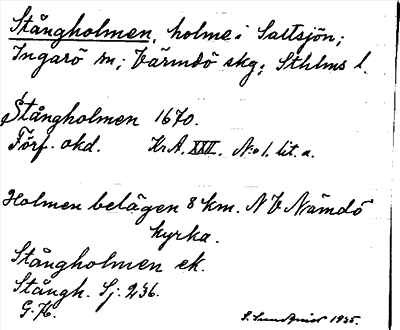 Stångholmen, holme i Saltsjön;
Ingarö sn; Värmdö skg; Sthlms l.
Stångholmen 1670.
Förf. okd. Kr A. XXII. No 1. lit. a.
Holmen belägen 8 km. N V Nämdö
kyrka.
Stångholmen ek.
Stångh. Sj. 236.
G. K.
1935.